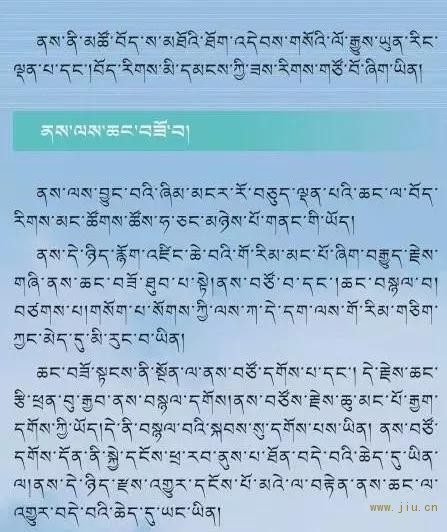 ནས་ནི་མཚོ་བོད་ས་མཐོའི་ཐོག་འདེབས་གསོའི་ལོ་རྒྱུས་ཡུན་རིང་
ལྡན་པ་དང་།བོད་རིགས་མི་དམངས་ཀྱི་ཟས་རིགས་གཙོ་བོ་ཞིག་ཡིན།
ནས་ལས་ཆང་བཟོ་བ།
ནས་ལས་བྱུང་བའི་ཞིམ་མངར་རོ་བཅུད་ལྡན་པའི་ཆང་ལ་བོད་
རིགས་མང་ཚོགས་ཚོས་ཧ་ཅང་མཉེས་པོ་གནང་གི་ཡོད།
ནས་དེ་ཉིད་རྙོག་འཛིང་ཆེ་བའི་གོ་རིམ་མང་པོ་ཞིག་བརྒྱུད་རྗེས་
གཞི་ནས་ཆང་བཟོ་ཐུབ་པ་སྟེ།ནས་བཙོ་བ་དང་།ཆང་བསྙལ་བ།
བཙགས་པ།གསོག་པ་སོགས་ཀྱི་ལས་ཀ་དེ་དག་ལས་གོ་རིམ་གཅིག་
ཀྱང་མེད་དུ་མི་རུང་བ་ཡིན།
ཆང་བཟོ་སྟངས་ནི་སྔོན་ལ་ནས་བཙོ་དགོས་པ་དང་། དེ་རྗེས་ཆང་
རྩི་ཕྲན་བུ་རྒྱབ་ནས་བསྙལ་དགོས།ནས་བཙོས་རྗེས་ཆུ་མང་པོ་རྒྱག་
དགོས་ཀྱི་ཡོད།དེ་ནི་བསྙལ་བའི་སྐབས་སུ་དགོས་པས་ཡིན། ནས་བཙོ་
དགོས་དོན་ནི་སྐྱེ་དངོས་ཕྲ་རབ་ནུས་པ་ཐོན་བདེ་བའི་ཆེད་དུ་ཡིན་
ལ།ནས་དེ་ཉིད་རྫས་འགྱུར་དངོས་པོ་མའེ་ལ་བརྟེན་ནས་ཆང་ལ་
འགྱུར་བདེ་བའི་ཆེད་དུ་ཡང་ཡིན།
www.jiu.cn